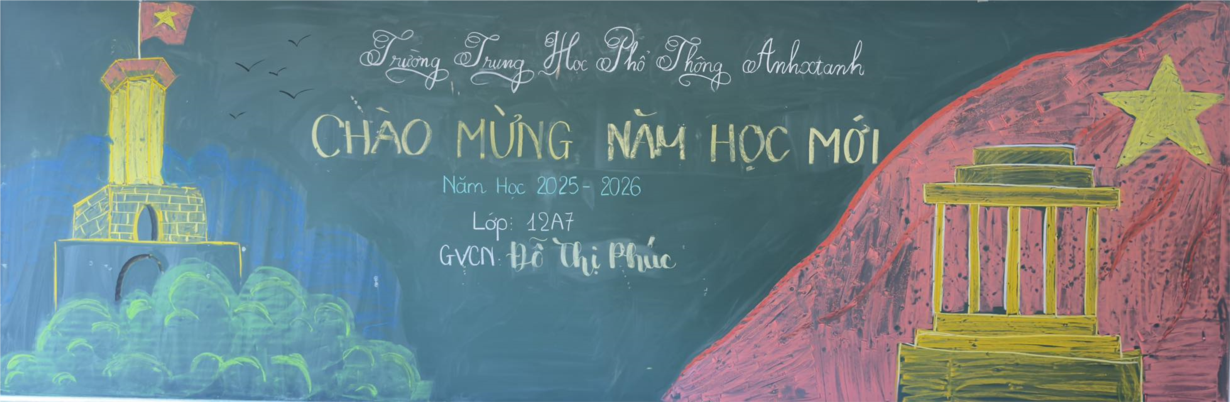 Trường Trung Học Phổ Thông Anhxtanh
CHÀO MỪNG NĂM HỌC MỚI
Năm Học 2025 - 2026
Lớp: 12A7
GVCN: Đỗ Thị Phúc